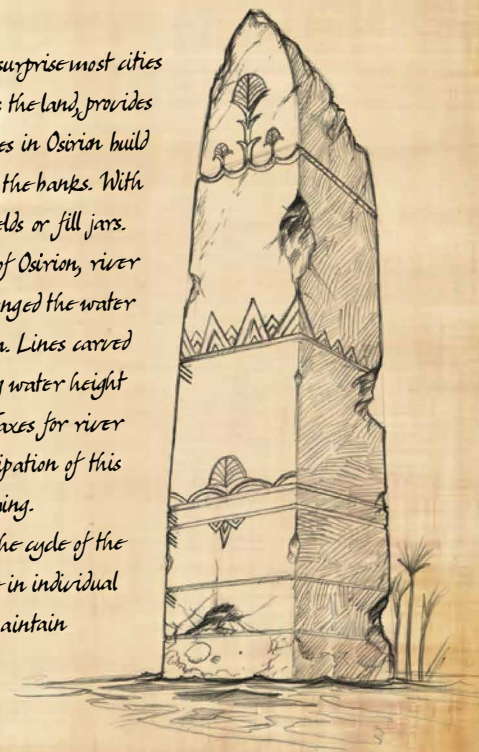 surprise most cities
s the land, provides
es in Osirion build
the banks. With
elds or fill jars.
of Osirion, river
nged the water
n. Lines carved
g water height
axes for river
ipation of this
ing.
he cycle of the
in individual
aintain